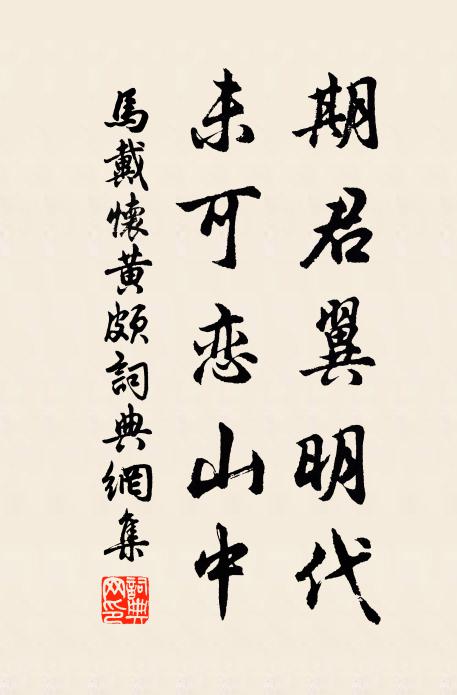 期君翼明代
未可恋山中
馬戴懷黄頗詞典網集
詞典网印